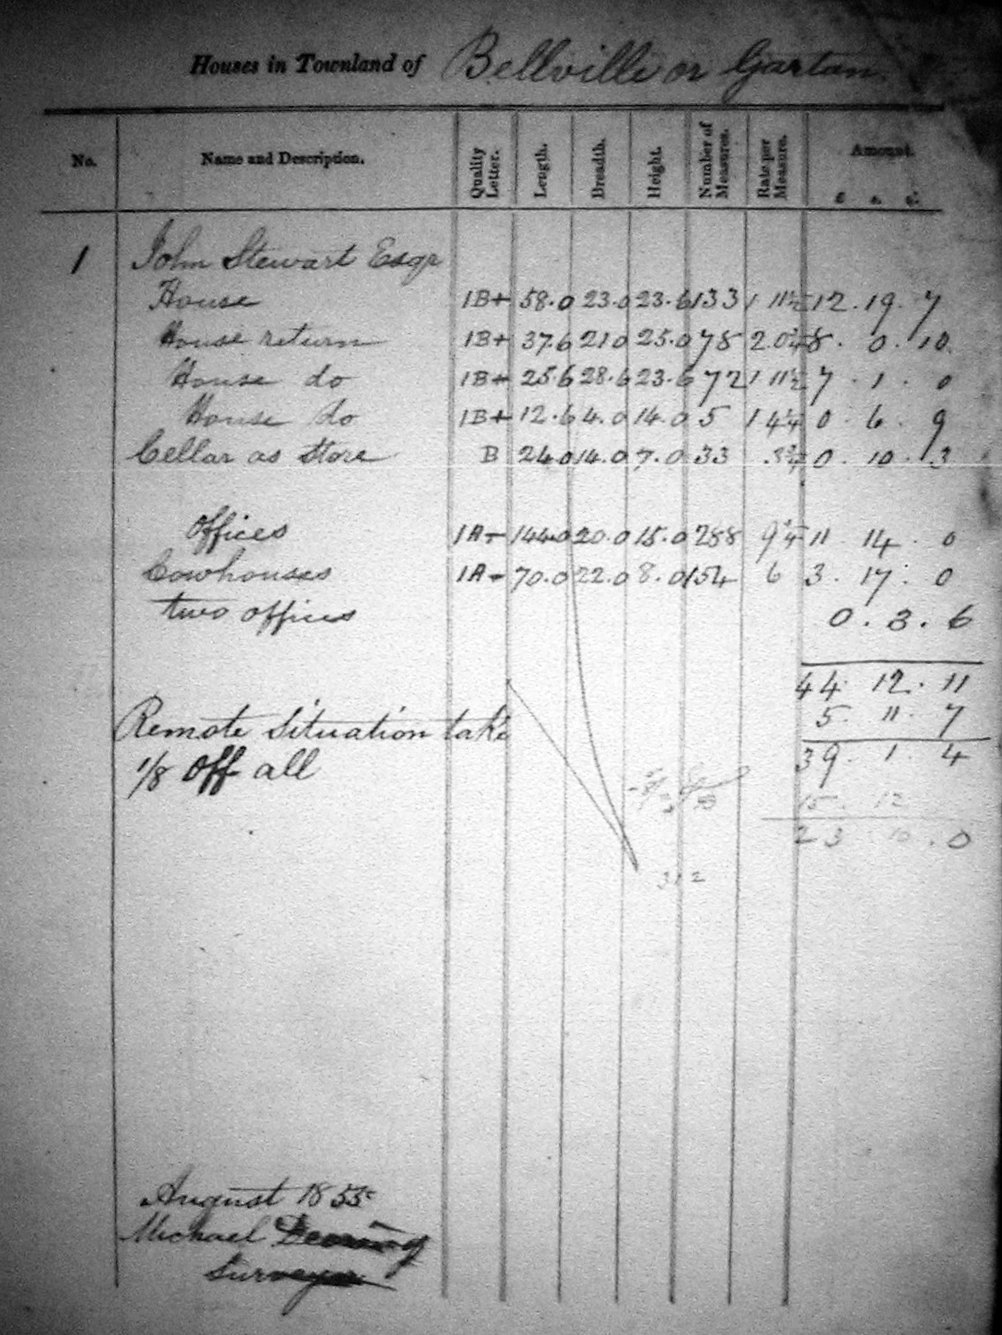 Houses in Townland of Bellville or Gartan
No. Name and Description. Quality Letter. Length. Breadth. Height. Number of Measures. Rate per Measure. Amount.
£ s. d.
1 John Stewart Esqr
House 1B+ 58.0 23.0 23.6 133 1 11½ 12. 19. 7
House return 1B+ 37.6 21.0 25.0 78 2 0¾ 8. 0. 10
House do 1B+ 25.6 28.6 23.6 72 1 11½ 7. 1. 0
House do 1B+ 12.6 4.0 14.0 5 1 4¼ 0. 6. 9
Cellar as Store B 24.0 14.0 7.0 33 3¾ 0. 10. 3
Offices 1A- 144.0 20.0 15.0 288 9¾ 11. 14. 0
Cowhouses 1A- 70.0 22.0 8.0 154 6 3. 17. 0
two offices 0. 3. 6
44. 12. 11
Remote Situation take 5. 11. 7
1/8 off all 39. 1. 4
15. 12
23. 10. 0
312
August 1855
Michael
Surveyor